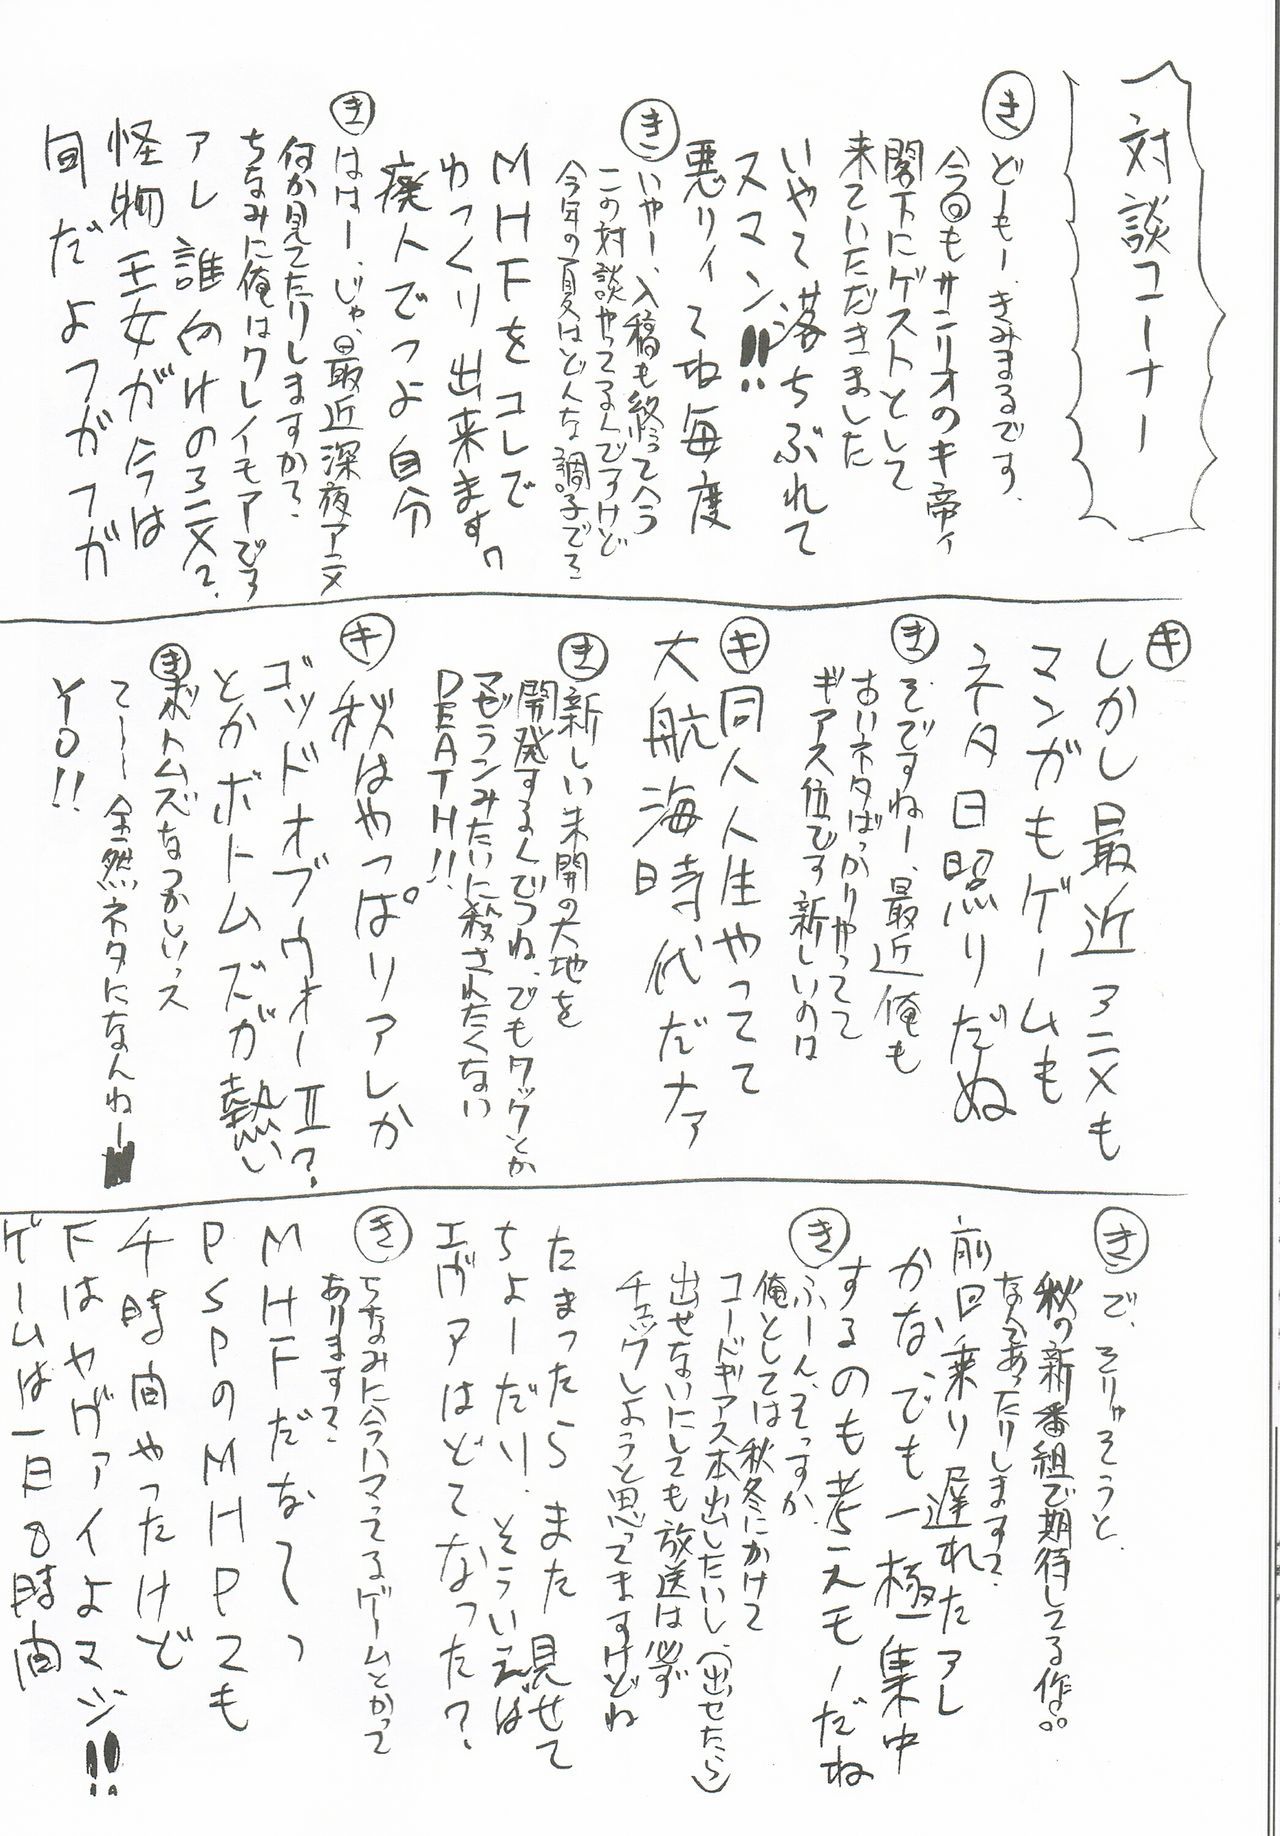 対談コーナー
き どーもー、きみまるです、
今回もサンリオのキ帝ィ
閣下にゲストとして
来ていただきました
いやて落ちぶれて
スマン!!
悪リィてね毎度
き いやー、入稿も終って今
この対談やってるんですけど
今年の夏はどんな調子でる
MHFをコレで
ゆっくり出来ます。
廃人でつよ自分
き はは―、じゃ、最近深夜アニメ
何か見てたりしますか?
ちなみに俺はクレイモアです
アレ誰向けのアニメ?
怪物王女が今は
旬だよフガフガ
キ しかし最近アニメも
マンガもゲームも
ネタ日照りだぬ
き そですねー、最近俺も
古いネタばっかりやってて
ギアス位です新しいのは
キ 同人人生やってて
大航海時代だナァ
き 新しい未開の大地を
開発するんでつね、でもクックとか
マゼランみたいに殺されたくない
DEATH!!
キ 秋はやっぱリアレか
ゴッドオブウォーII?
とかボトムズが熱い
き ボトムズなつかしいっス
て―― 全然ネタになんねー
YO!!
き で、そりゃそうと、
秋の新番組で期待してる作品
なんてあったりしますて?
前回乗り遅れたアレ
かな、でも一極集中
するのも考えモノだね
き ふーん、そっすか、
俺としては秋冬にかけて
コードギアス本出したいし、(出せたら)
出せないにしても放送は必ず
チェックしようと思ってますけどね
たまったらまた見せて
ちょーだい、そういえば
エヴァはどてなった?
き ちなみに今ハマってるゲームとかって
ありますて?
MHFだなてっ
PSPのMHPでも
千時間やったけど
Fはヤヴァイよマジ!!
ゲームは一日8時間